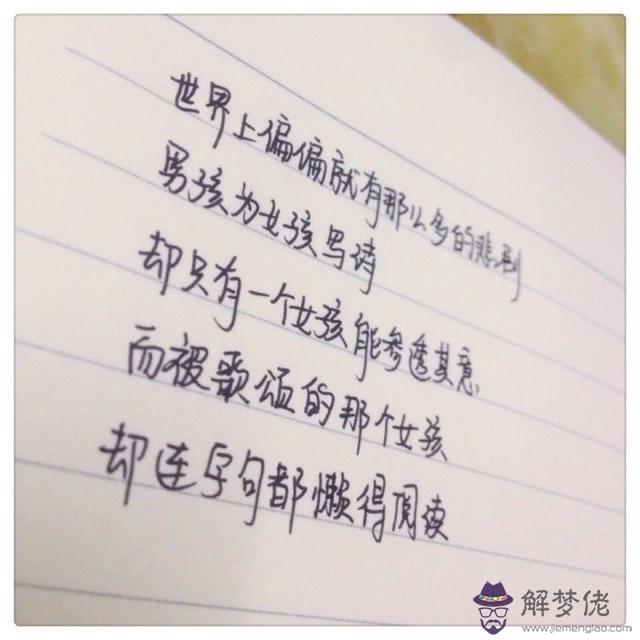 世界上偏偏就有那么多的悲剧
男孩为女孩写诗
却只有一个女孩能参透其意
而被歌颂的那个女孩
却连字句都懒得阅读
解梦佬
www.jiemenglao.com